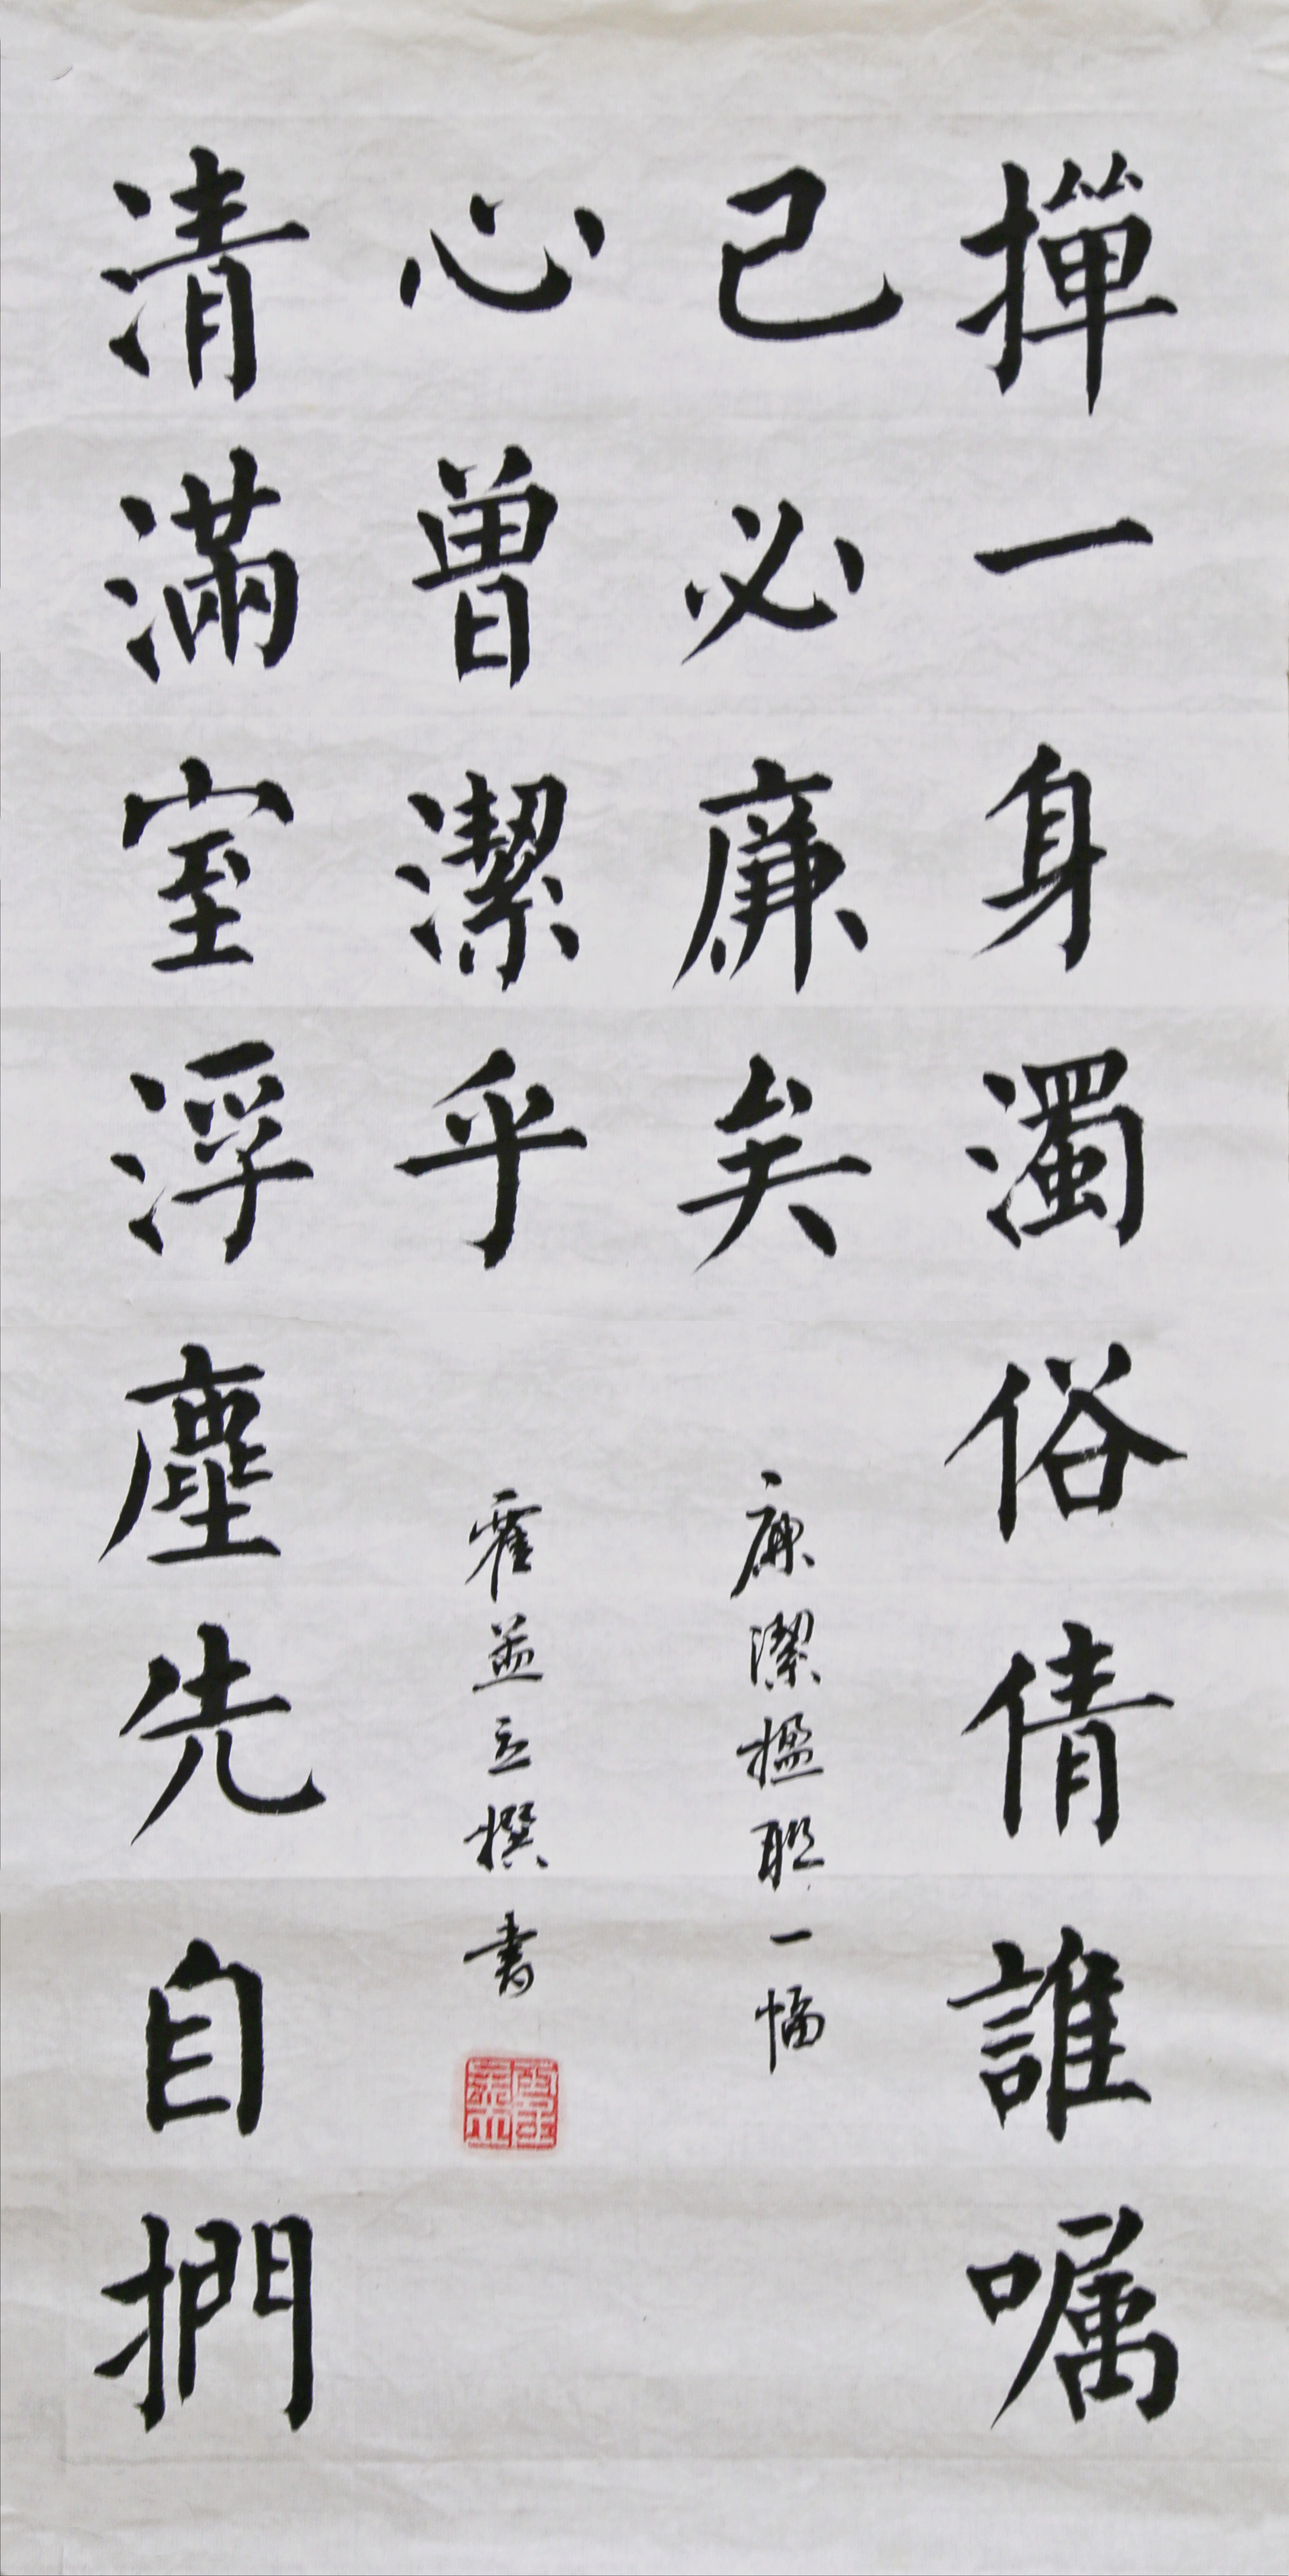 撣一身濁俗倩誰嘱
己必廉矣
清滿室浮塵先自捫
心曾潔乎
廉潔楹联一幅
霍益立撰書